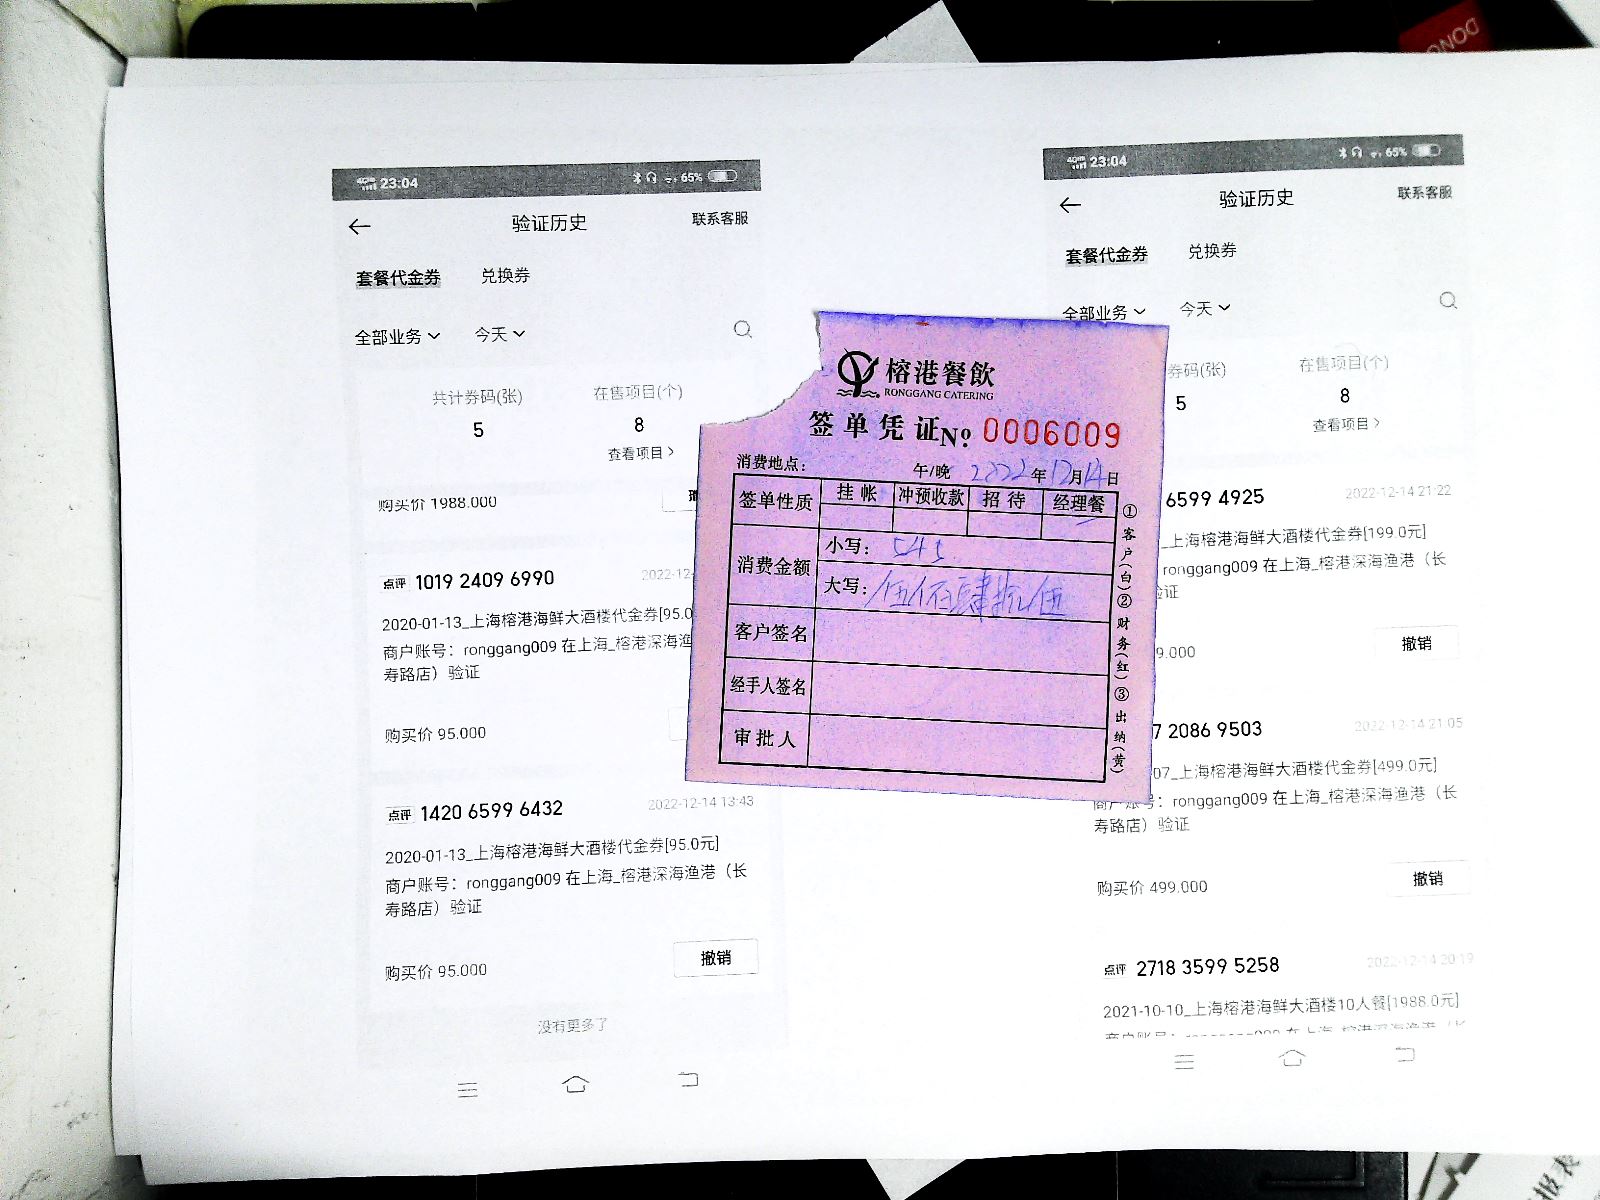 DONG
4G 23:04 65%
← 验证历史 联系客服
套餐代金券 兑换券
全部业务 今天
共计券码(张) 在售项目(个)
5 8
查看项目 >
购买价 1988.000
点评 1019 2409 6990 2022-12-
2020-01-13_上海榕港海鲜大酒楼代金券[95.0
商户账号：ronggang009 在上海_榕港深海渔
寿路店）验证
购买价 95.000
点评 1420 6599 6432 2022-12-14 13:43
2020-01-13_上海榕港海鲜大酒楼代金券[95.0元]
商户账号：ronggang009 在上海_榕港深海渔港（长
寿路店）验证
购买价 95.000 撤销
没有更多了
榕港餐飲
RONGGANG CATERING
签单凭证 No 0006009
消费地点： 午/晚 2022年12月14日
签单性质 挂帐 冲预收款 招待 经理餐
消费金额 小写： 545
大写： 伍佰肆拾伍
客户签名
经手人签名
审批人
①客户(白)②财务(红)③出纳(黄)
4G 23:04 65%
← 验证历史 联系客服
套餐代金券 兑换券
全部业务 今天
券码(张) 在售项目(个)
5 8
查看项目 >
6599 4925 2022-12-14 21:22
_上海榕港海鲜大酒楼代金券[199.0元]
ronggang009 在上海_榕港深海渔港（长
验证
9.000 撤销
7 2086 9503 2022-12-14 21:05
07_上海榕港海鲜大酒楼代金券[499.0元]
商户账号：ronggang009 在上海_榕港深海渔港（长
寿路店）验证
购买价 499.000 撤销
点评 2718 3599 5258 2022-12-14 20:19
2021-10-10_上海榕港海鲜大酒楼10人餐[1988.0元]
商户账号：ronggang009 在上海_榕港深海渔港（长
报表